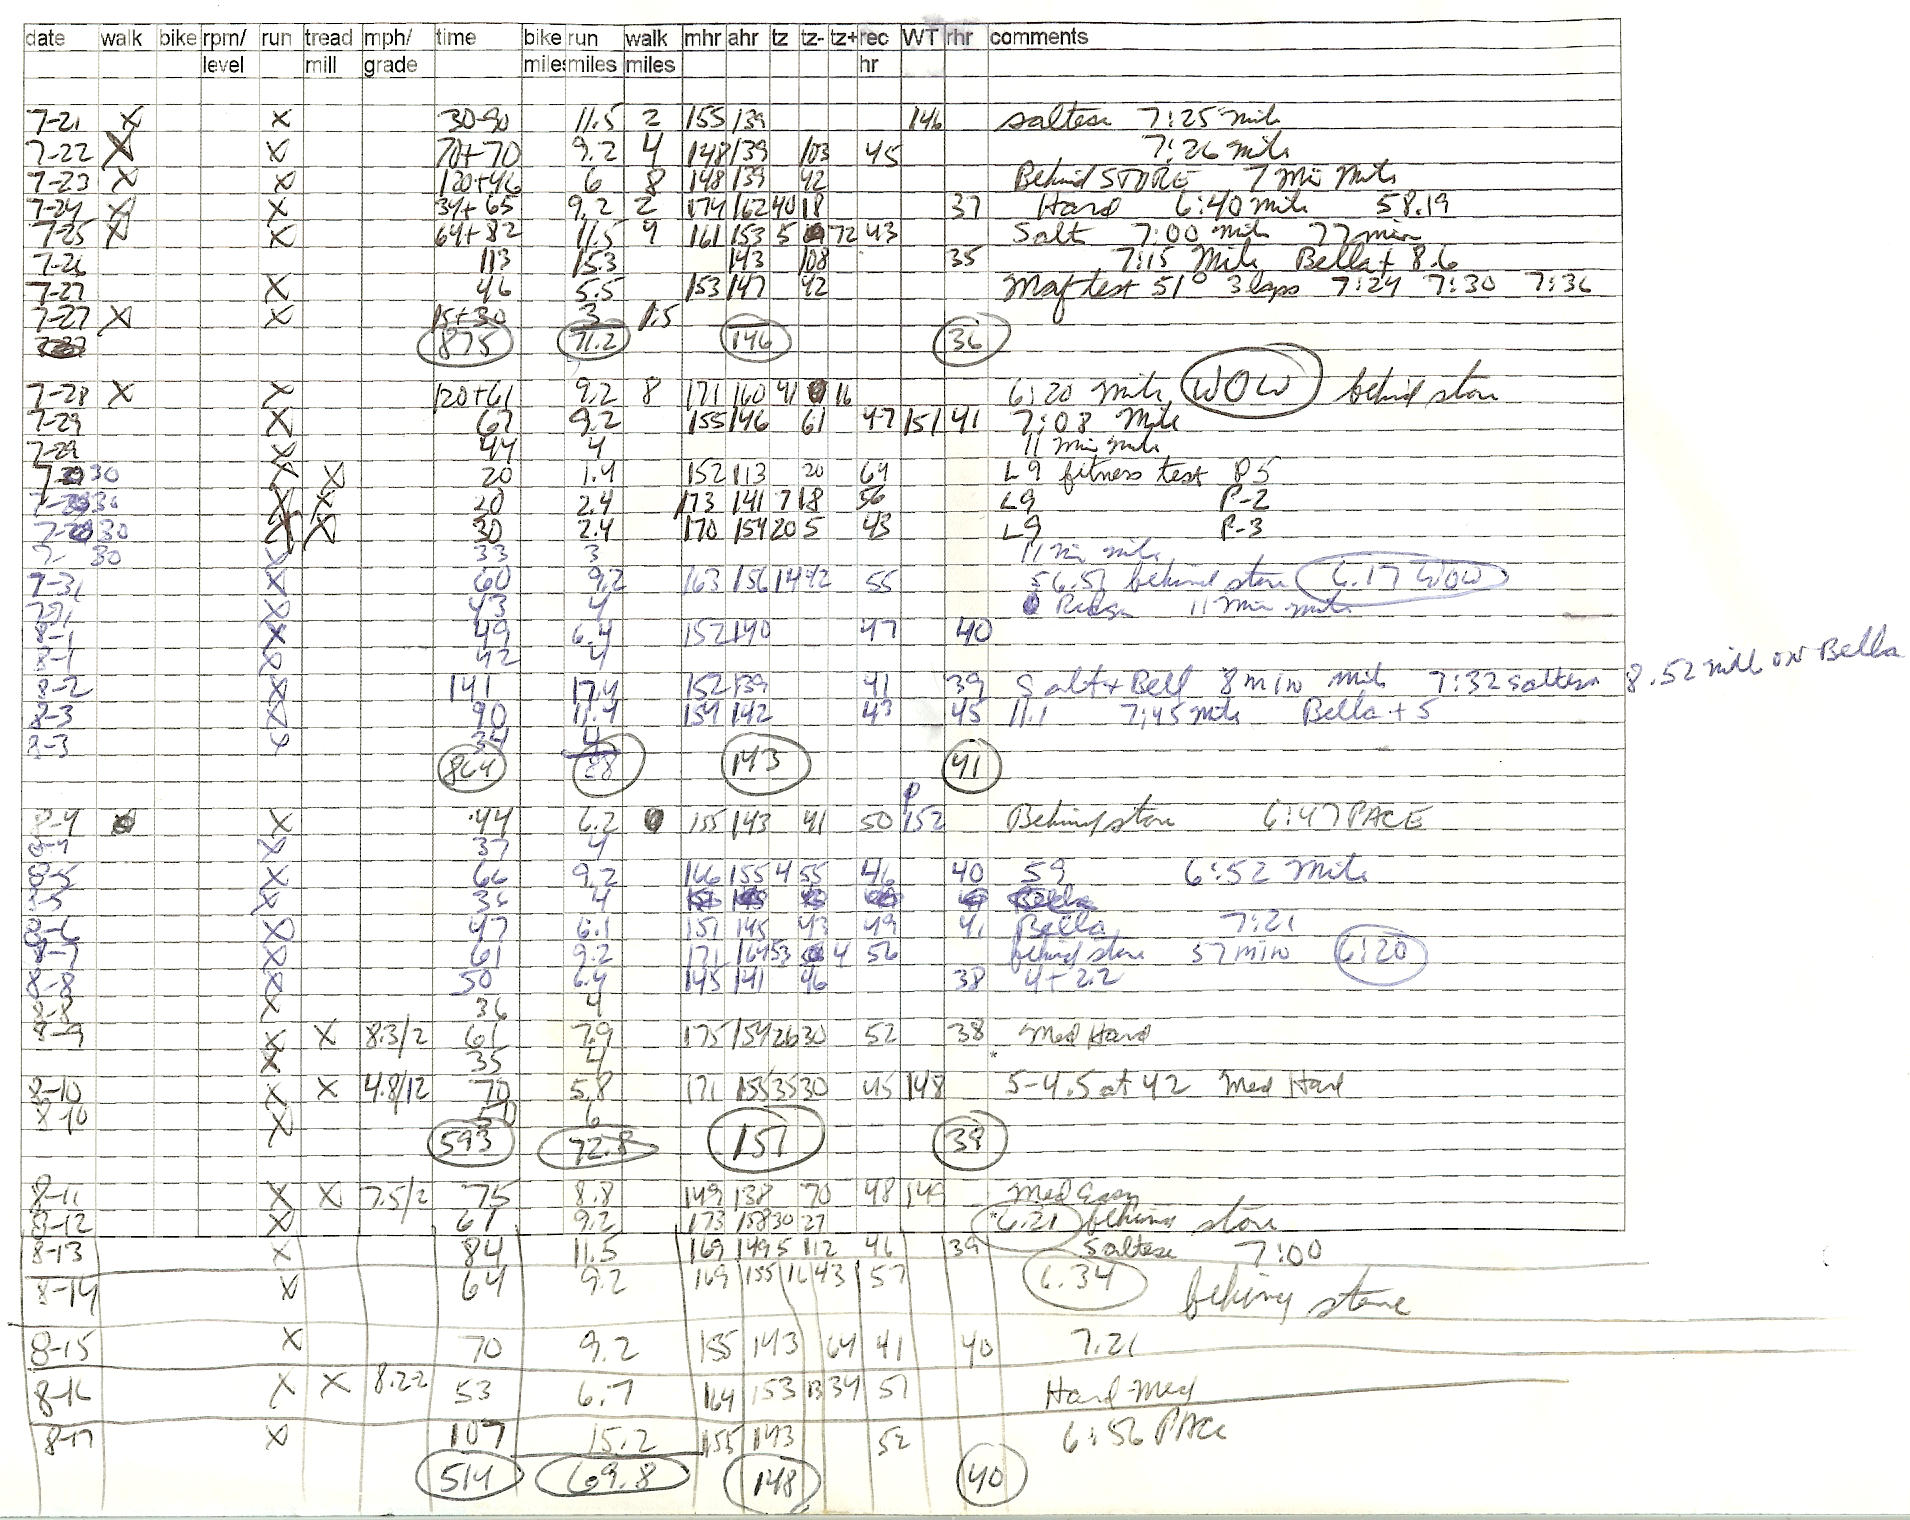 date walk bike rpm/ run tread mph/ time bike run walk mhr ahr tz tz- tz+ rec WT rhr comments
level mill grade miles miles miles hr
7-21 X X 30-90 11.5 2 155 139 146 saltese 7:25 mile
7-22 X X 70+70 9.2 4 148 139 103 45 7:26 mile
7-23 X X 120+46 6 8 148 139 42 Behind STORE 7 Min Mile
7-24 X X 34+65 9.2 2 174 162 40 18 37 Hard 6:40 mile 58.19
7-25 X X 64+82 11.5 4 161 153 5 72 43 Salt 7:00 mile 77 min
7-26 113 15.3 143 108 35 7:15 Mile Bella + 8.6
7-27 X 46 5.5 153 147 42 Maf test 51° 3 laps 7:24 7:30 7:36
7-27 X X 15+30 3 1.5
875 71.2 146 36
7-28 X X 120+61 9.2 8 171 160 41 16 6:20 Mile WOW behind store
7-29 X 67 9.2 155 146 61 47 151 41 7:08 Mile
7-29 X 44 4 11 min mile
7-30 X X 20 1.4 152 113 20 64 L9 fitness test P5
7-30 X X 20 2.4 173 141 7 18 56 L9 P-2
7-30 X X 30 2.4 170 154 20 5 43 L9 P-3
7-30 X 33 3 11 Min mile
7-31 X 60 9.2 163 156 14 42 55 56.51 behind store 6.17 WOW
X 43 4 11 Min mile
8-1 X 49 6.4 152 140 47 40
8-1 X 42 4
8-2 X 141 17.4 152 139 41 39 Salt + Bell 8 min mile 7:32 saltese 8.52 mile on Bella
8-3 X 90 11.4 154 142 43 45 11.1 7:45 mile Bella + 5
8-3 X 34 4
864 88 143 41
8-4 X 44 6.2 155 143 41 50 152 Behind store 6:47 PACE
8-4 X 37 4
8-5 X 66 9.2 166 155 4 55 46 40 59 6:52 Mile
8-5 X 35 4
8-6 X 47 6.1 151 145 43 49 41 Bella 7:21
8-7 X 61 9.2 171 164 53 4 56 behind store 57 min 6:20
8-8 X 50 6.4 145 141 46 38 4+2.2
8-8 X 36 4
8-9 X X 8.3/2 61 7.9 175 154 26 30 52 38 Med Hard
X 35 4 *
8-10 X X 4.8/12 70 5.8 171 155 35 30 45 148 5-4.5 at 42 Med Hard
8-10 X 51 6
593 72.8 151 39
8-11 X X 7.5/2 75 8.8 149 138 70 48 149 Med Easy
8-12 X 61 9.2 173 158 30 27 *6.21 behind store
8-13 X 84 11.5 169 149 5 112 46 39 Saltese 7:00
8-14 X 64 9.2 169 155 16 43 57 6.34 behind store
8-15 X 70 9.2 155 143 64 41 40 7.21
8-16 X X 8.22 53 6.7 164 153 13 34 51 Hard-Med
8-17 X 107 15.2 155 143 52 6:56 PACE
514 69.8 148 40